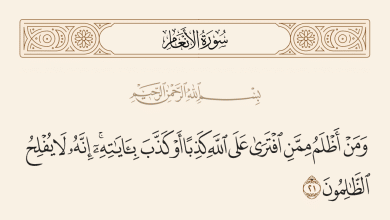 سُورَةُ الأَنْعَامِ
بِسْمِ اللَّهِ الرَّحْمَٰنِ الرَّحِيمِ
وَمَنْ أَظْلَمُ مِمَّنِ ٱفْتَرَىٰ عَلَى ٱللَّهِ كَذِبًا أَوْ كَذَّبَ بِـَٔايَـٰتِهِۦٓ ۗ إِنَّهُۥ لَا يُفْلِحُ
ٱلظَّـٰلِمُونَ ٢١